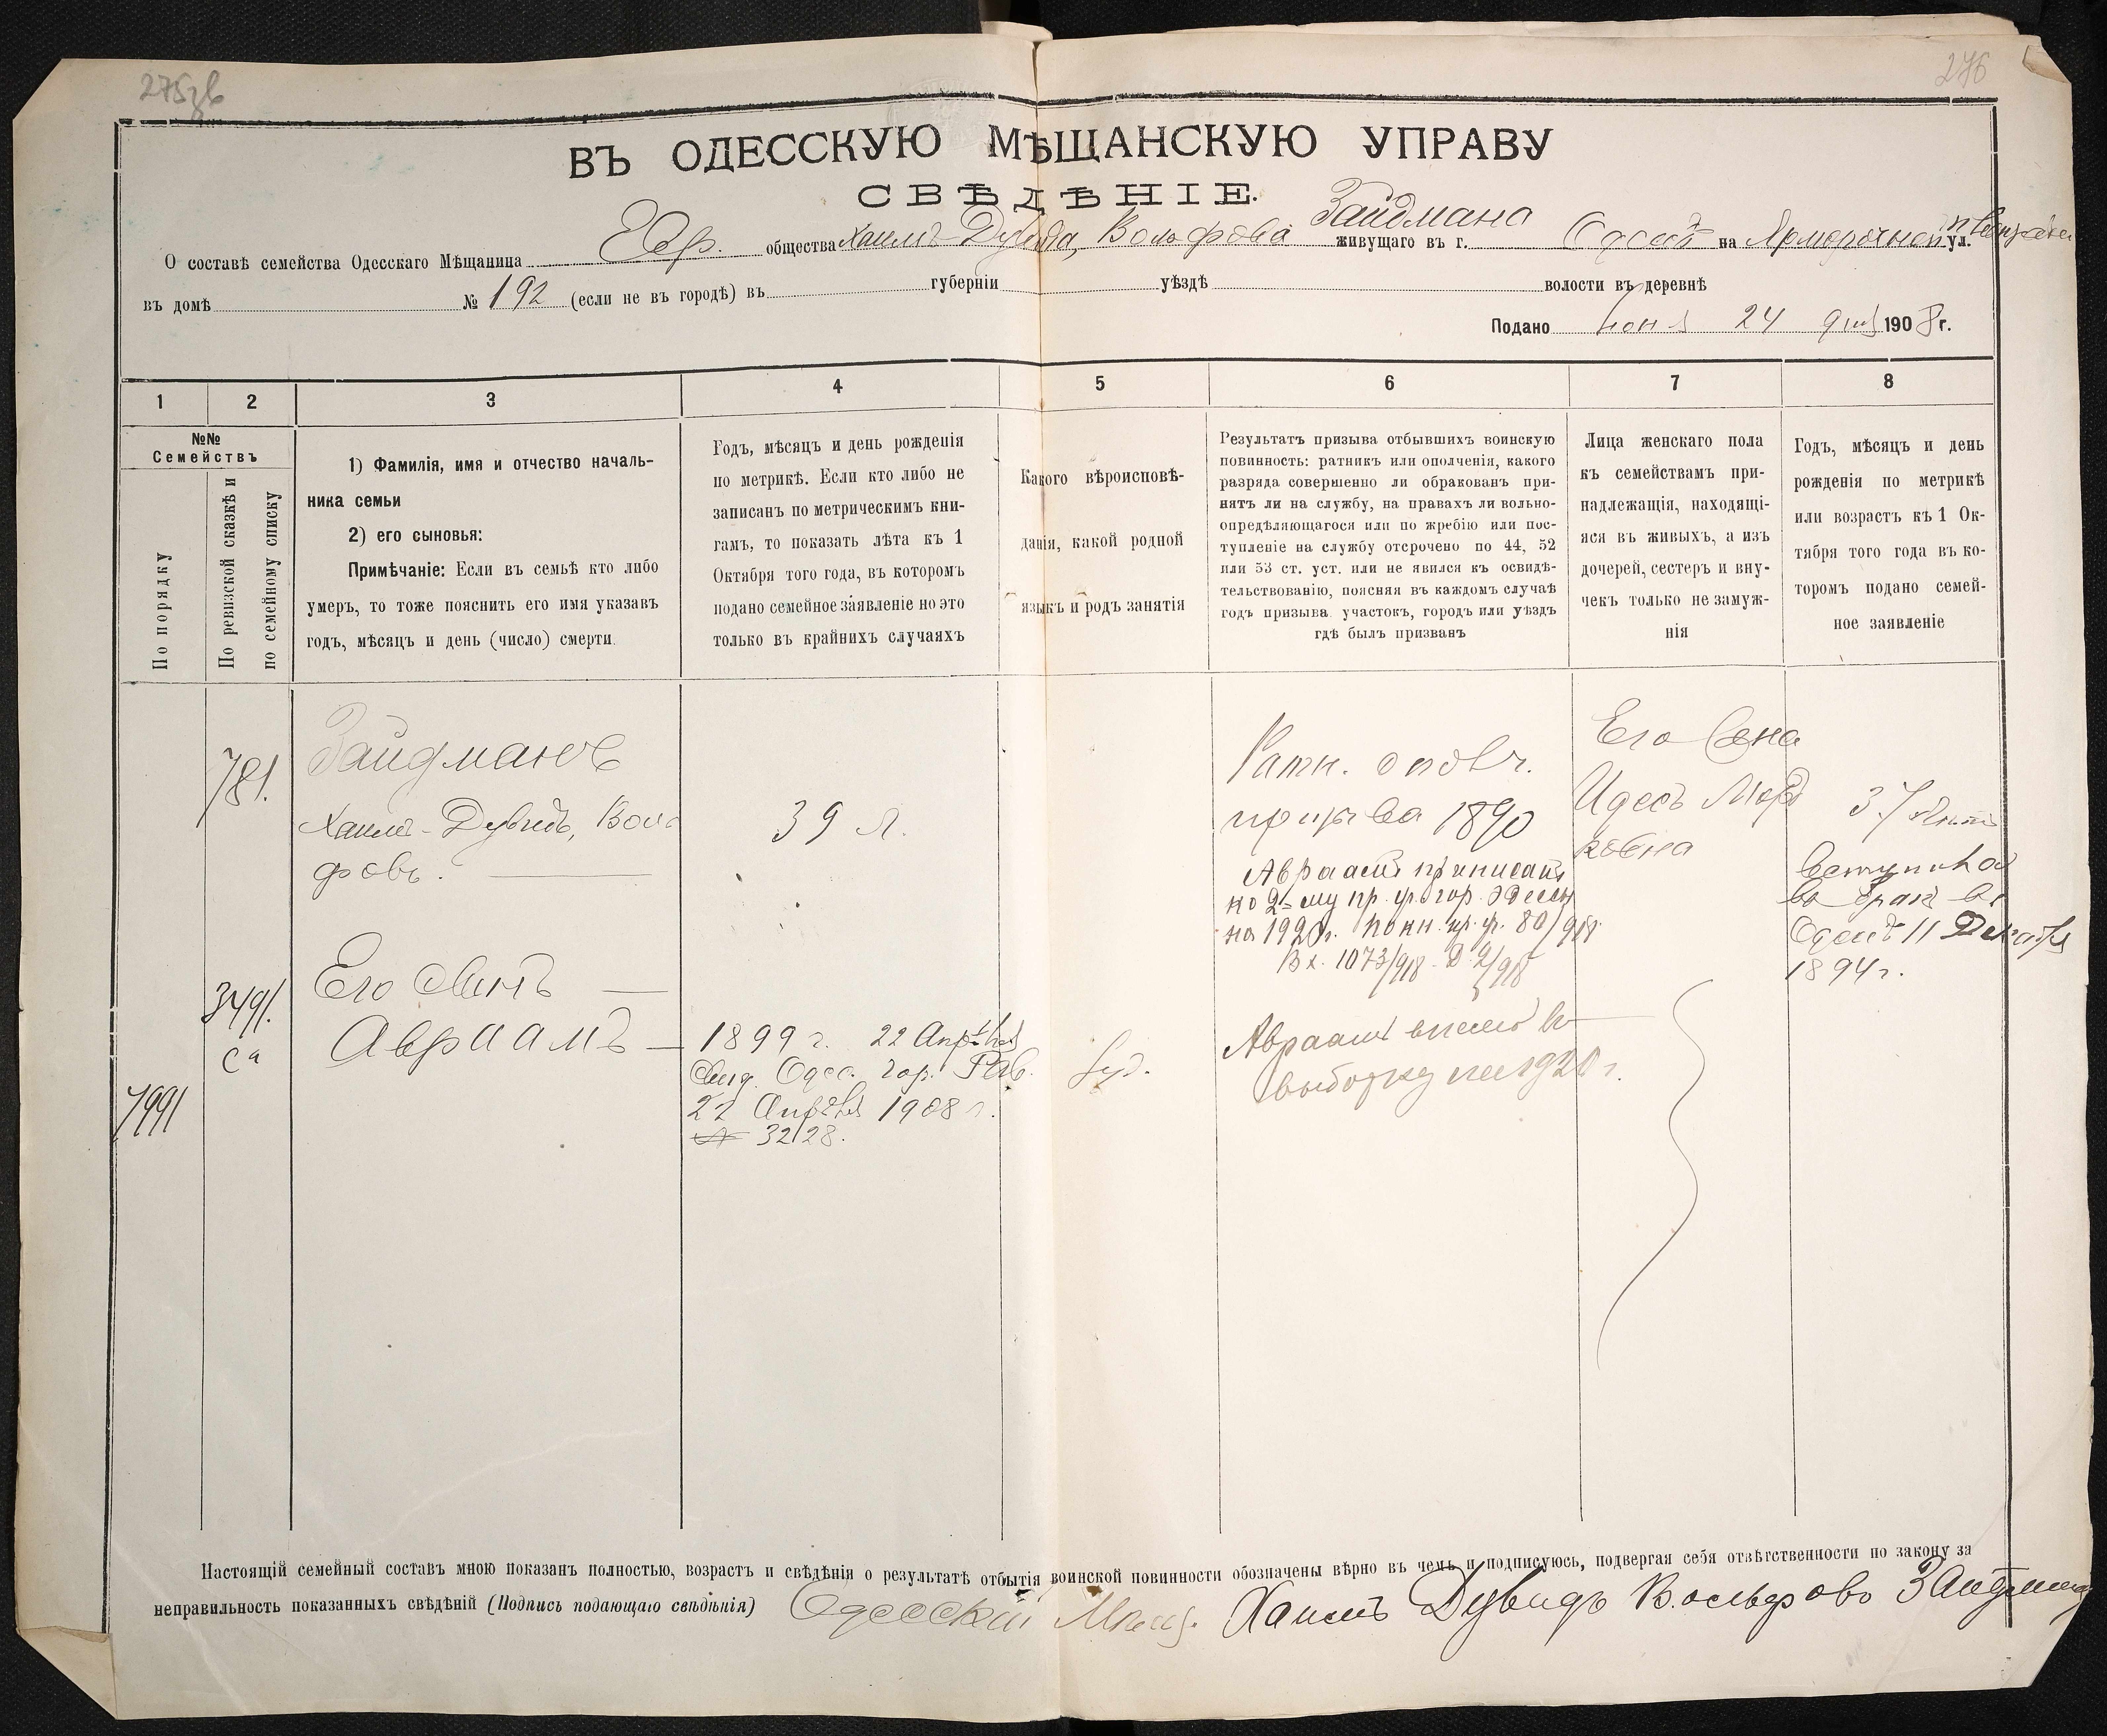 275зв
276
ВЪ ОДЕССКУЮ МѢЩАНСКУЮ УПРАВУ
СВѢДѢНІЕ.
О составѣ семейства Одесскаго Мѣщанина Евр. общества Хаимъ-Дувида Вольфова Зайдмана живущаго въ г. Одессѣ на Ярморочной ул.
въ домѣ № 192 (если не въ городѣ) въ губерніи уѣздѣ волости въ деревнѣ
Подано Іюня 24 дня 1908 г.
1 2 3 4 5 6 7 8
№№
Семействъ
По порядку
По ревизской сказкѣ и
по семейному списку
1) Фамилія, имя и отчество началь-
ника семьи
2) его сыновья:
Примѣчаніе: Если въ семьѣ кто либо
умеръ, то тоже пояснить его имя указавъ
годъ, мѣсяцъ и день (число) смерти.
Годъ, мѣсяцъ и день рожденія
по метрикѣ. Если кто либо не
записанъ по метрическимъ кни-
гамъ, то показать лѣта къ 1
Октября того года, въ которомъ
подано семейное заявленіе но это
только въ крайнихъ случаяхъ
Какого вѣроисповѣ-
данія, какой родной
языкъ и родъ занятія
Результатъ призыва отбывшихъ воинскую
повинность: ратникъ или ополченія, какого
разряда совершенно ли обракованъ при-
нятъ ли на службу, на правахъ ли вольно-
опредѣляющагося или по жребію или пос-
тупленіе на службу отсрочено по 44, 52
или 53 ст. уст. или не явился къ освидѣ-
тельствованію, поясняя въ каждомъ случаѣ
годъ призыва. участокъ, городъ или уѣздъ
гдѣ былъ призванъ
Лица женскаго пола
къ семействамъ при-
надлежащія, находящі-
яся въ живыхъ, а изъ
дочерей, сестеръ и вну-
чекъ только не замуж-
нія
Годъ, мѣсяцъ и день
рожденія по метрикѣ
или возрастъ къ 1 Ок-
тября того года въ ко-
торомъ подано семей-
ное заявленіе
781.
Зайдманъ
Хаимъ-Дувидъ, Воль
фовъ.
39 л.
Ратн. ополч.
призыва 1890
Авраамъ приписанъ
ко 2-му пр. уч. гор. Одессы
на 1920 г. по кн. пр. уч. 80/918
Вх. 1073/918
Его Жена
Идесъ Морд
ковна
37 лѣтъ
Вступилъ
въ бракъ въ
Одессѣ 11 Декабря
1894 г.
3491.
са
Его сынъ
Авраамъ
7991
1899 г. 22 Апрѣля
Свид. Одес. гор. Рав.
22 Апрѣля 1908 г.
№ 32128.
Іуд.
Авраамъ внесенъ въ
выборку на 1920 г.
Настоящій семейный составъ мною показанъ полностью, возрастъ и свѣдѣнія о результатѣ отбытія воинской повинности обозначены вѣрно въ чемъ и подписуюсь, подвергая себя отвѣтственности по закону за
неправильность показанныхъ свѣдѣній (Подпись подающаго свѣдѣнія) Одесскій Мѣщ. Хаимъ Дувидъ Вольфовъ Зайдманъ